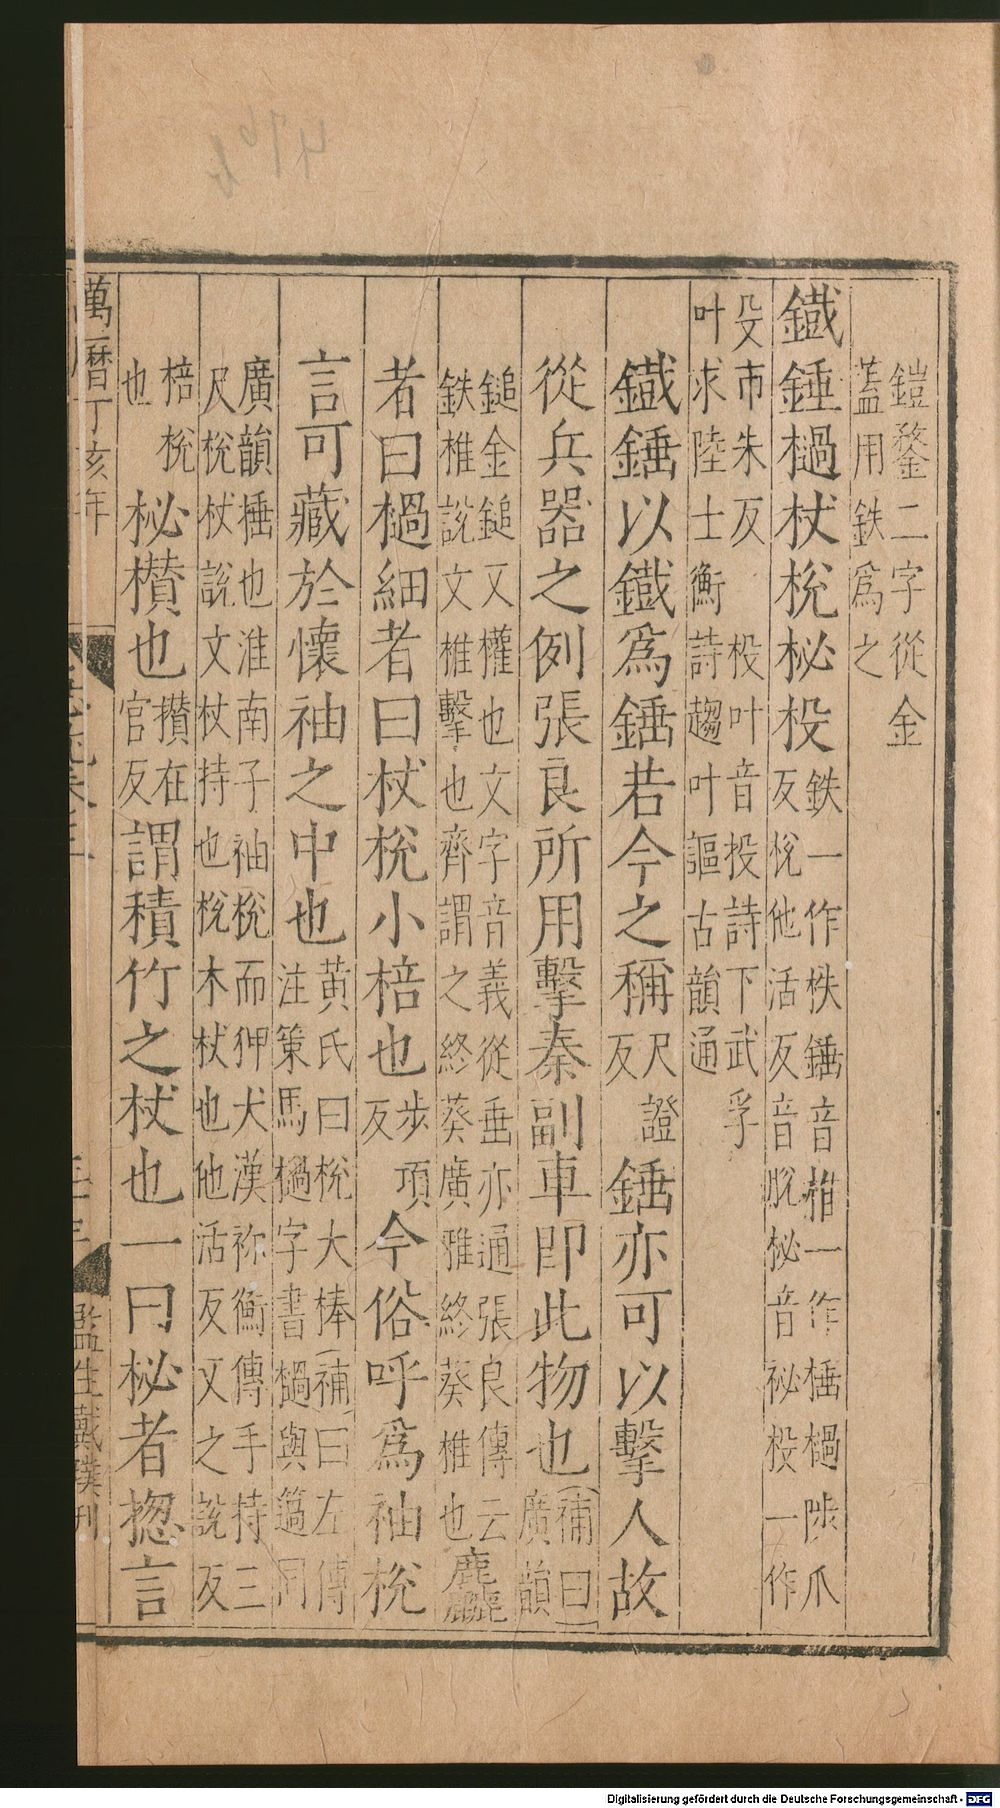 鎧鍪二字從金
蓋用鉄爲之
鐵錘檛杖梲柲杸鉄一作柣錘音椎一作棰檛陟瓜
反梲他活反音脫柲音祕杸一作
殳市朱反 杸叶音投詩下武孚
叶求陸士衡詩趨叶謳古韻通
鐵錘以鐵爲錘若今之稱尺證
反錘亦可以擊人故
從兵器之例張良所用擊秦副車即此物也(補曰)
廣韻
鎚金鎚又權也文字音義從垂亦通張良傳云
鉄椎說文椎擊也齊謂之終葵廣雅終葵椎也麤
者曰檛細者曰杖梲小棓也步項
反今俗呼爲袖梲
言可藏於懷袖之中也黃氏曰梲大棒(補)曰左傳
注策馬檛字書檛與簻同
廣韻棰也淮南子袖梲而狎犬漢祢衡傳手持三
尺梲杖說文杖持也梲木杖也他活反又之說反
棓梲
也柲欑也攢在
官反謂積竹之杖也一曰柲者揔言
萬曆丁亥年
監生戴璞刊
Digitalisierung gefördert durch die Deutsche Forschungsgemeinschaft - DFG